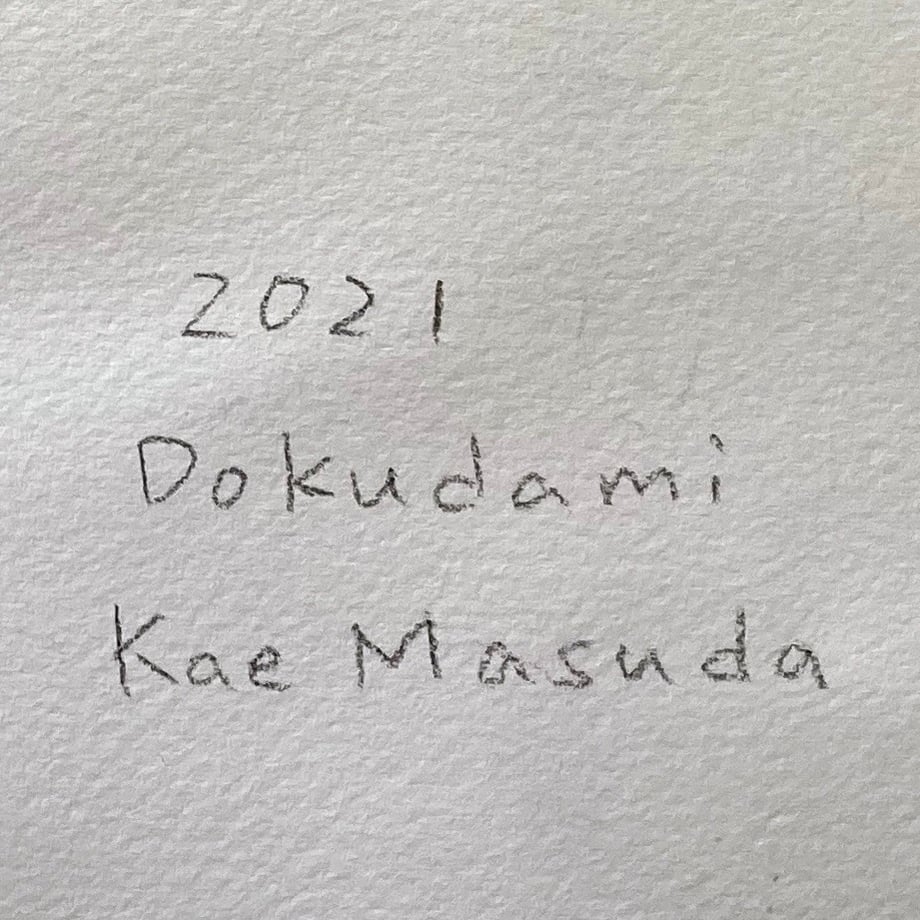 2021
Dokudami
Kae Masuda